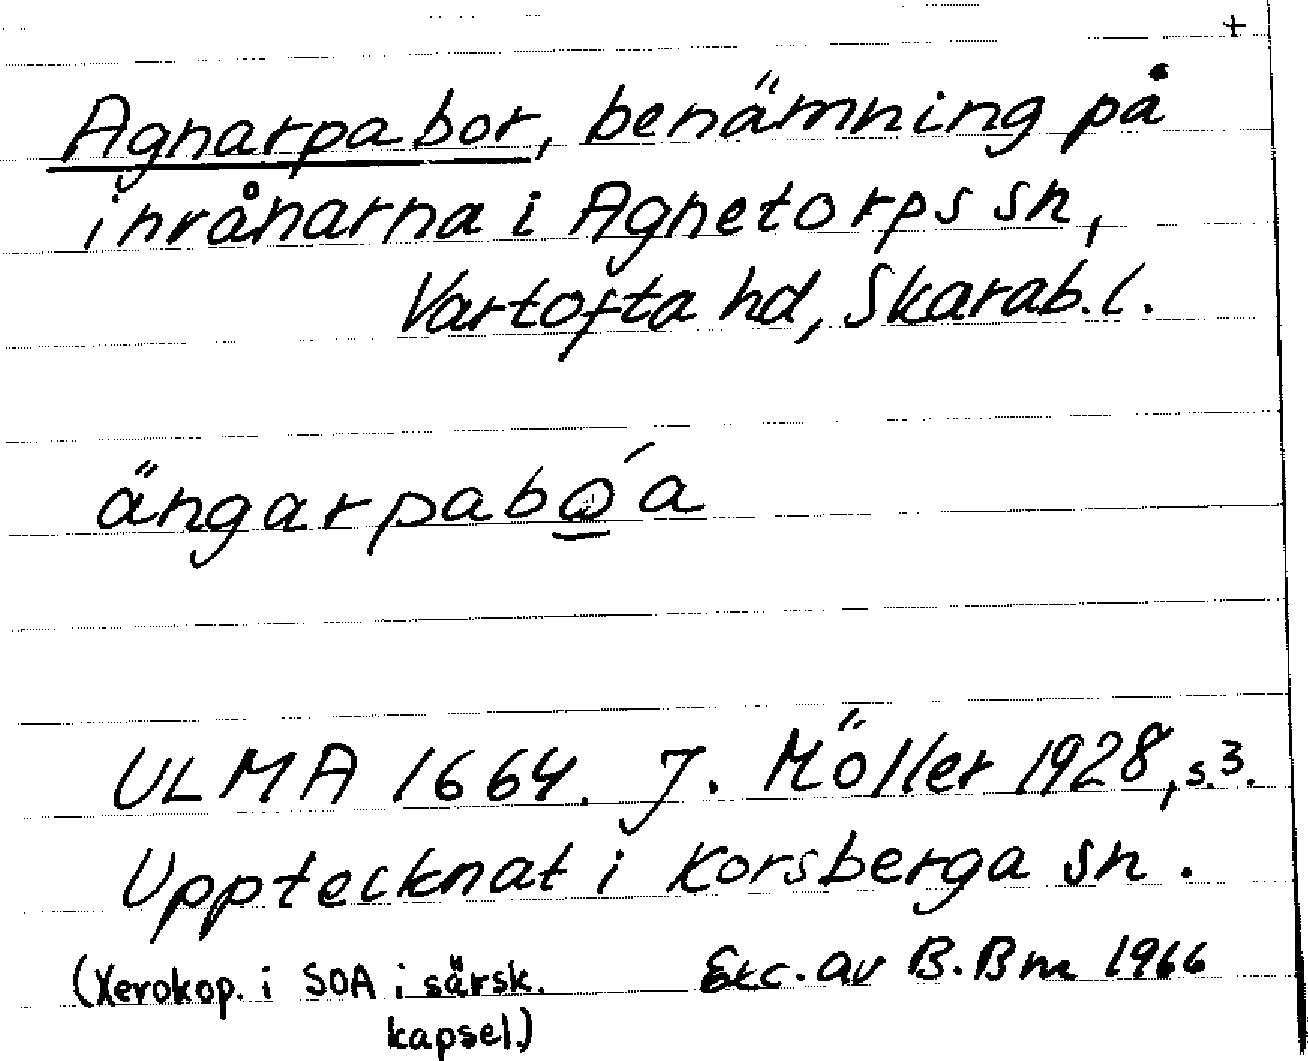 +
Agnarpabor, benämning på
inrånarna i Agnetorps sn,
Vartofta hd, Skarab.l.
ängarpabo̲´a
ULMA 1664. J. Möller 1928, s. 3.
Upptecknat i Korsberga sn.
(Xerokop. i SOA i särsk. kapsel.)
Exc. av B. Bm 1966